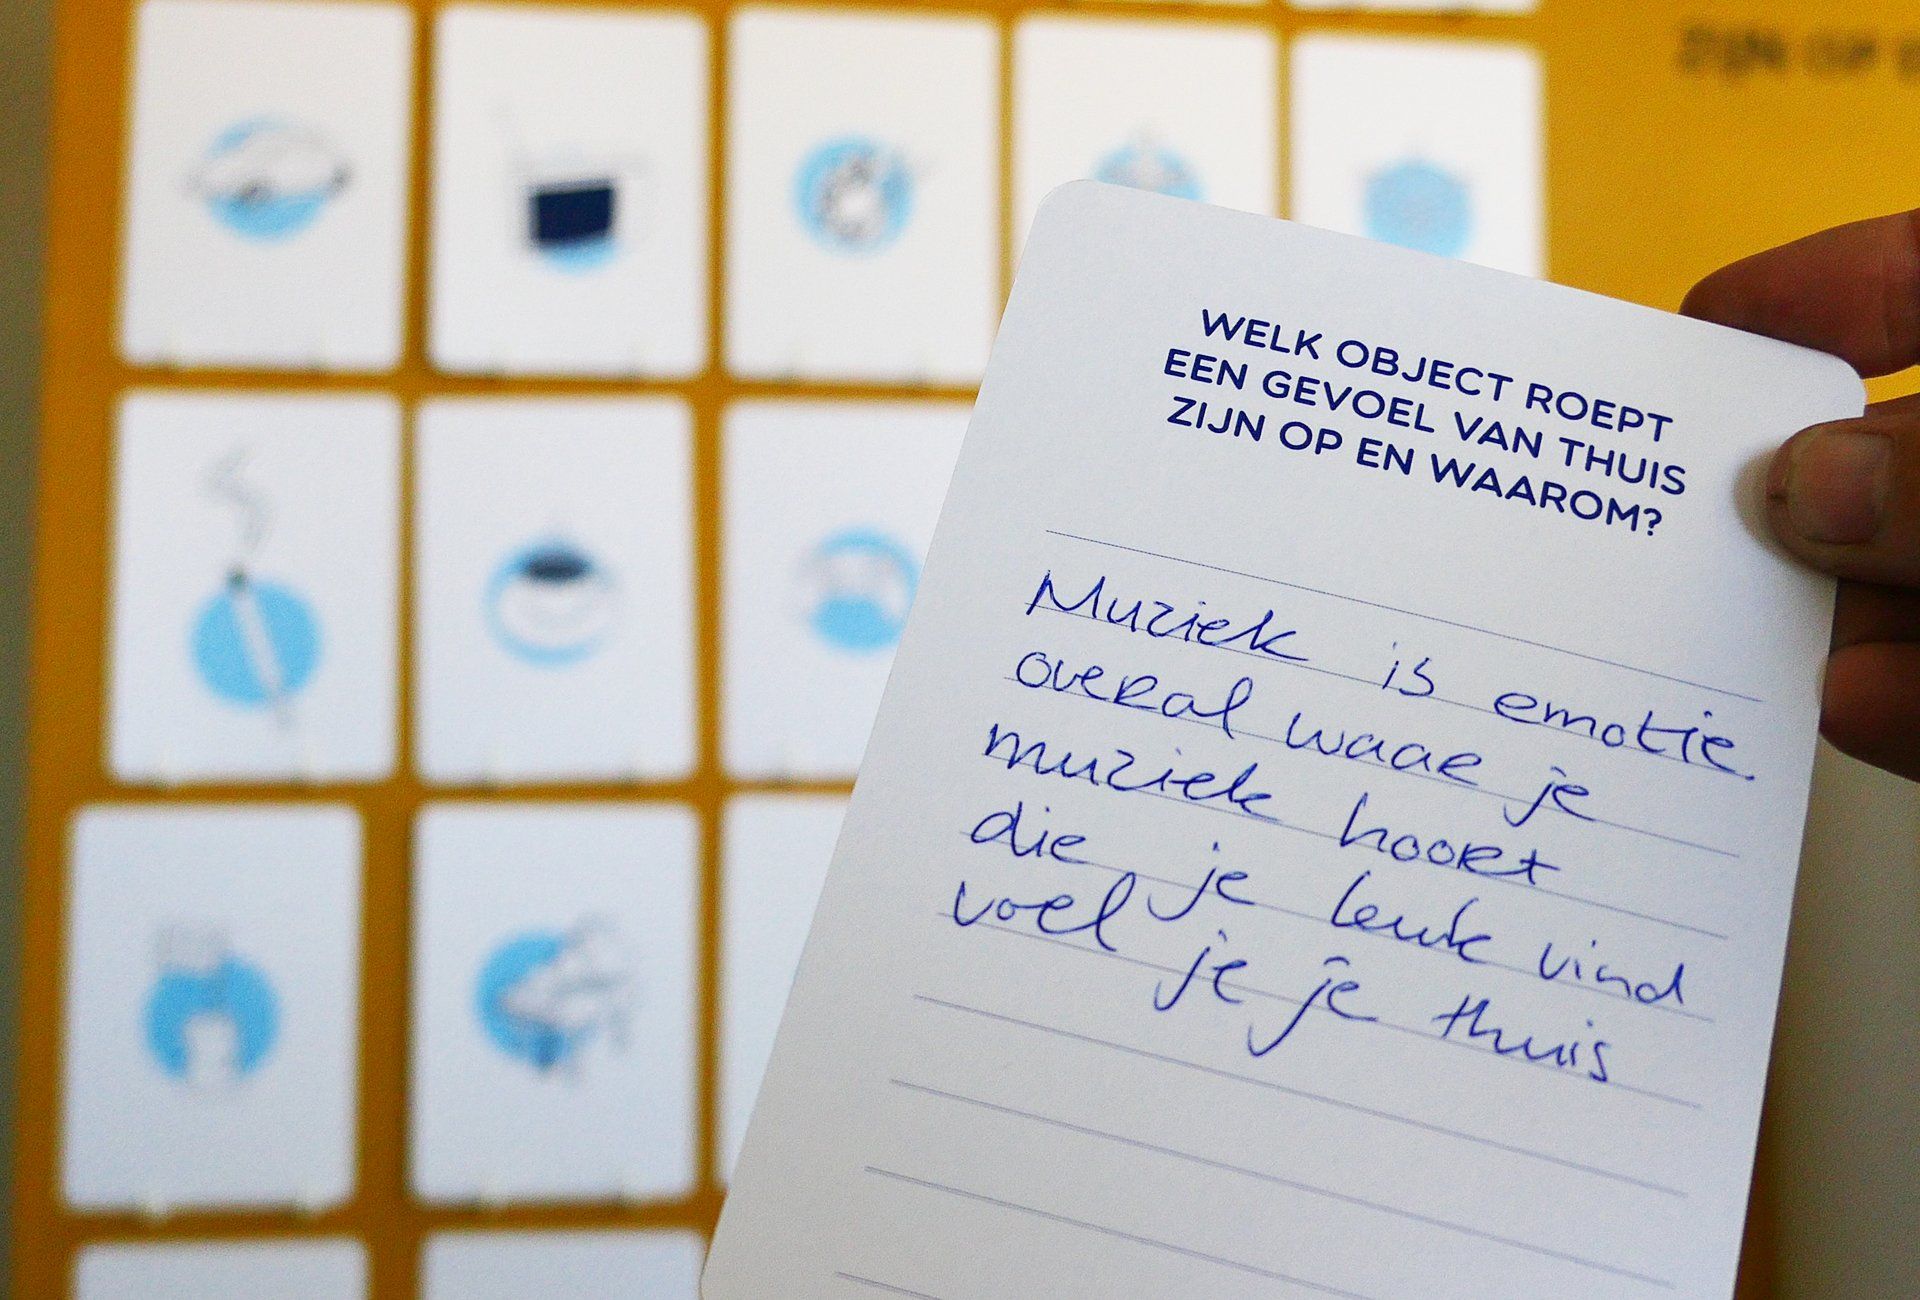 ZIJN OP
WELK OBJECT ROEPT
EEN GEVOEL VAN THUIS
ZIJN OP EN WAAROM?
Muziek is emotie.
overal waar je
muziek hoort
die je leuk vind
voel je je thuis